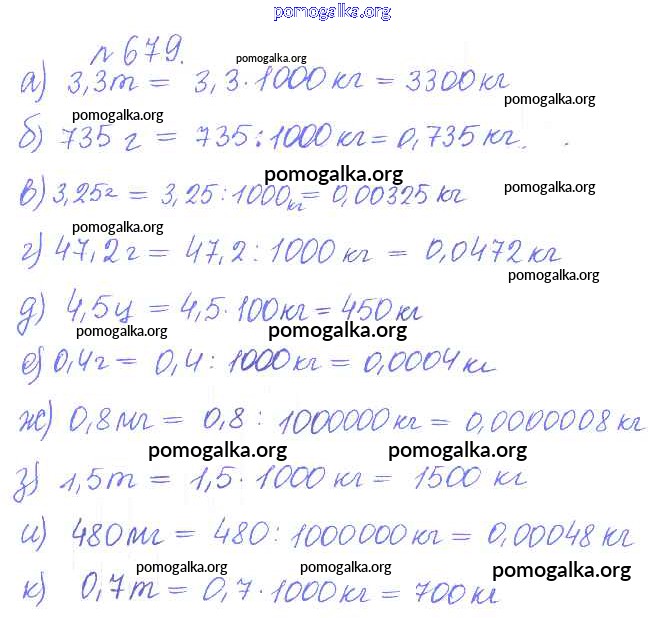 pomogalka.org
№ 679.
pomogalka.org
а) 3,3т = 3,3·1000 кг = 3300 кг
pomogalka.org
pomogalka.org
б) 735 г = 735:1000 кг = 0,735 кг.
pomogalka.org
pomogalka.org
в) 3,25г = 3,25:1000 кг = 0,00325 кг
pomogalka.org
г) 47,2г = 47,2:1000 кг = 0,0472 кг
pomogalka.org
д) 4,5ц = 4,5·100 кг = 450 кг
pomogalka.org pomogalka.org
е) 0,4г = 0,4:1000 кг = 0,0004 кг
ж) 0,8мг = 0,8:1000000 кг = 0,0000008 кг
pomogalka.org pomogalka.org
з) 1,5т = 1,5·1000 кг = 1500 кг
и) 480мг = 480:1000000 кг = 0,00048 кг
pomogalka.org pomogalka.org pomogalka.org
к) 0,7т = 0,7·1000 кг = 700 кг